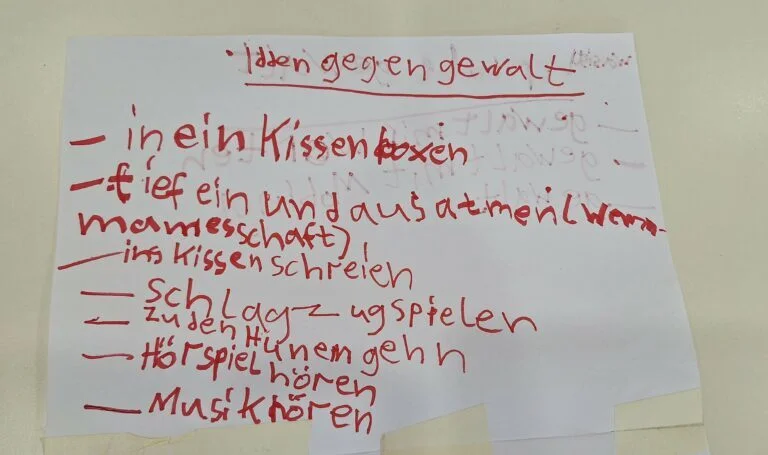 · Idden gegen gewalt
– in ein Kissen boxen
– tief ein und aus atmen (wenn
man es schaft)
– ins Kissen schreien
– schlagzugspielen
– zu den Hünern gehn
– Hörspiel hören
– Musik hören